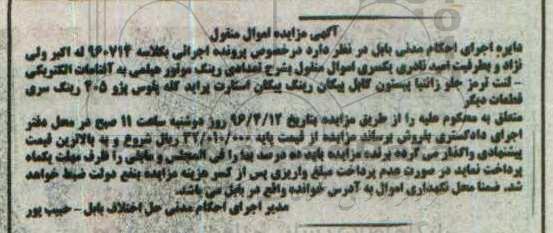 آگهی مزایده اموال منقول
دایره اجرای احکام مدنی بابل در نظر دارد درخصوص پرونده اجرائی بکلاسه ۹۶۰۷۱۴ له اکبر ولی
نژاد و بطرفیت امید نادری یکسری اموال منقول بشرح تعدادی رینگ موتور
- لنت ترمز جلو زانتیا پیستون کابل پیکان رینگ پیکان استارت پراید کله پلوس پژو ۴۰۵ رینگ سری
قطعات دیگر
متعلق به محکوم علیه را از طریق مزایده بتاریخ ۹۶/۴/۱۲ روز دوشنبه ساعت ۱۱ صبح در محل دفتر
اجرای دادگستری بفروش برساند مزایده از قیمت پایه ریال شروع و به بالاترین قیمت
پیشنهادی واگذار می گردد برنده مزایده باید ده درصد بها را فی المجلس و مابقی را ظرف مهلت یکماه
پرداخت نماید در صورت عدم پرداخت مبلغ واریزی پس از کسر هزینه مزایده بنفع دولت ضبط خواهد
شد. ضمنا محل نگهداری اموال به آدرس خوانده واقع در بابل می باشد.
مدیر اجرای احکام مدنی حل اختلاف بابل - حبیب پور